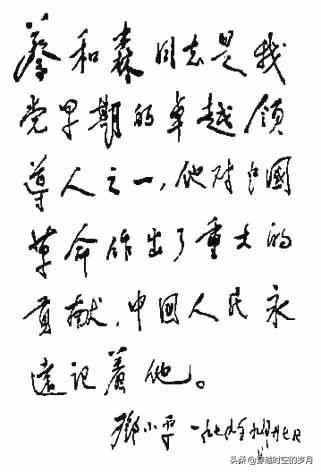 蔡和森同志是我
党早期的卓越领
导人之一，他对中國
革命作出了重大的
貢献，中国人民永
遠记着他。
鄧小平
头条 @穿越时空的岁月